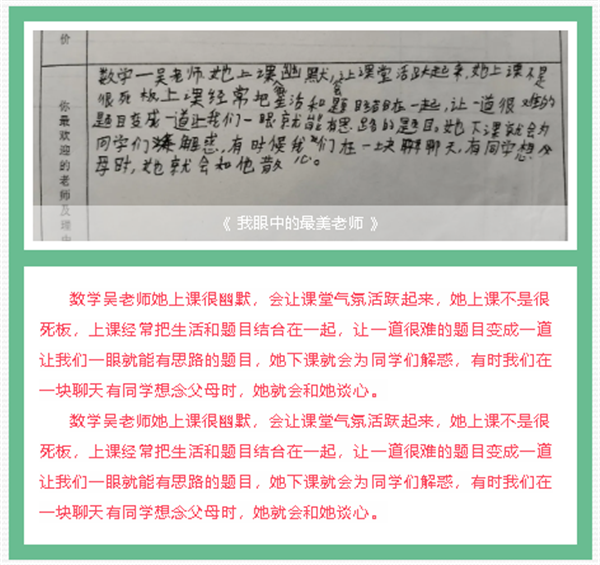 价
你最欢迎的老师及理由
数学—吴老师,她上课幽默,让课堂活跃起来,她上课不是
很死板上课经常把生活和题目结合在一起,让一道很难的
题目变成一道让我们一眼就能有思路的题目。她下课就会为
同学们解惑,有时候我们在一块聊聊天,有同学想念父
母时,她就会和他散心。
《 我眼中的最美老师 》
数学吴老师她上课很幽默，会让课堂气氛活跃起来，她上课不是很
死板，上课经常把生活和题目结合在一起，让一道很难的题目变成一道
让我们一眼就能有思路的题目，她下课就会为同学们解惑，有时我们在
一块聊天有同学想念父母时，她就会和她谈心。
数学吴老师她上课很幽默，会让课堂气氛活跃起来，她上课不是很
死板，上课经常把生活和题目结合在一起，让一道很难的题目变成一道
让我们一眼就能有思路的题目，她下课就会为同学们解惑，有时我们在
一块聊天有同学想念父母时，她就会和她谈心。